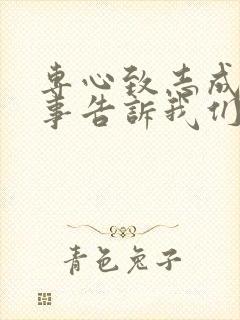 专心致志成
事告訴我们
青色兔子